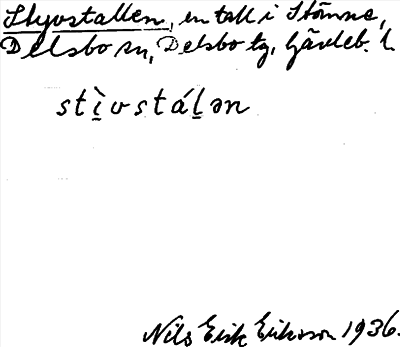 Styvstallen, en tall i Stömne,
Delsbo sn, Delsbo tg, Gävleb. l.
stìvstáḷən
Nils Erik Eriksson 1936.